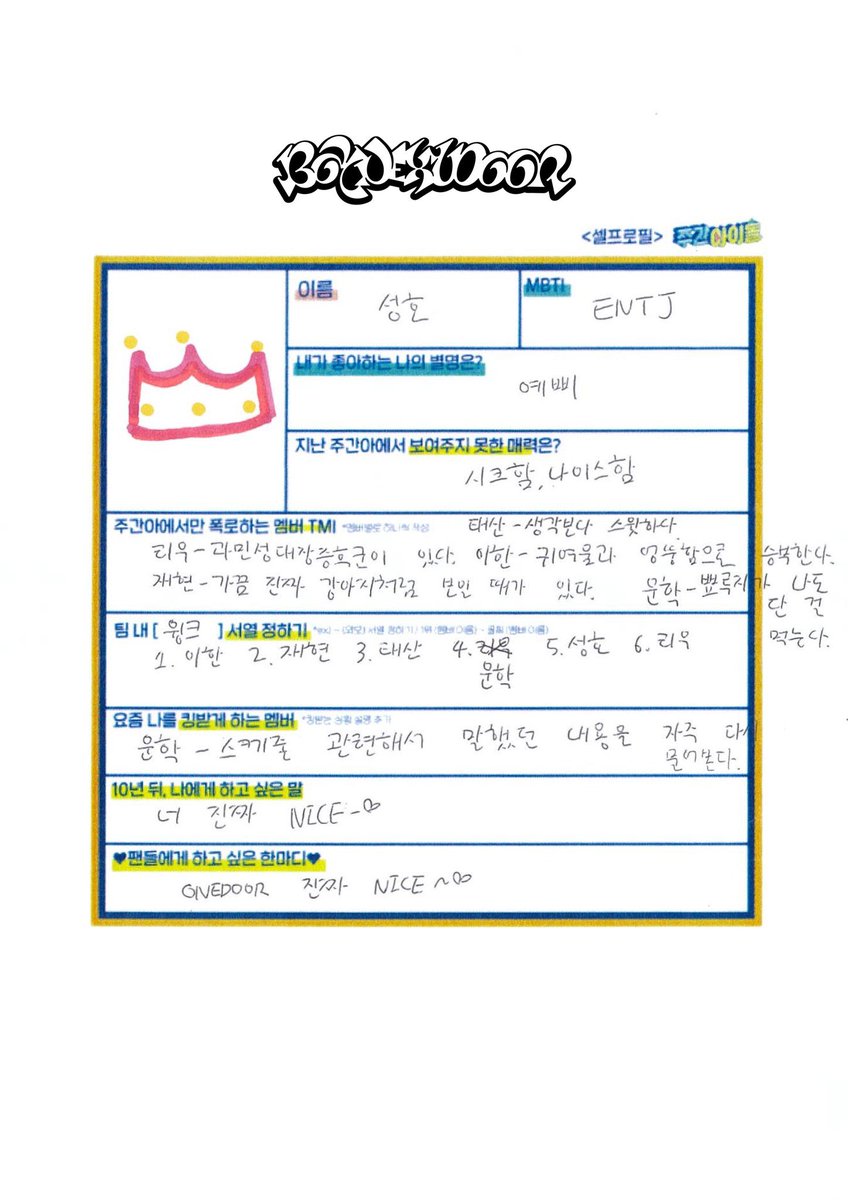 BOYNEXTDOOR
<셀프로필> 주간아이돌
이름
성호
MBTI
ENTJ
내가 좋아하는 나의 별명은?
예삐
지난 주간아에서 보여주지 못한 매력은?
시크함, 나이스함
주간아에서만 폭로하는 멤버 TMI *멤버별로 하나씩 작성
태산 - 생각보다 스윗하다
리우 - 과민성대장증후군이 있다. 이한 - 귀여움과 엉뚱함으로 승복한다.
재현 - 가끔 진짜 강아지처럼 보일 때가 있다. 운학 - 뾰루지가 나도
단 걸
먹는다.
팀 내 [ 윙크 ] 서열 정하기
1. 이한 2. 재현 3. 태산 4. 운학 5. 성호 6. 리우
요즘 나를 킹받게 하는 멤버 *킹받는 상황 설명 추가
운학 - 스케줄 관련해서 말했던 내용을 자주 다시
물어본다.
10년 뒤, 나에게 하고 싶은 말
너 진짜 NICE~∞
♥팬들에게 하고 싶은 한마디♥
ONEDOOR 진짜 NICE~∞